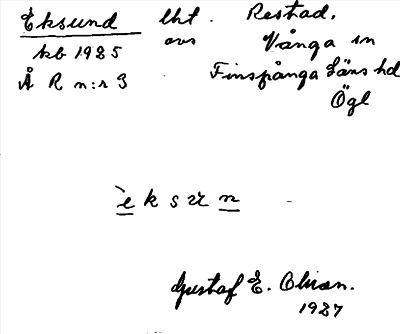 Eksund lht. Restad.
kb 1925 avs Vånga sn
Å R n:r 3 Finspånga läns hd
Ögl
è k s n
Gustaf E.
1927